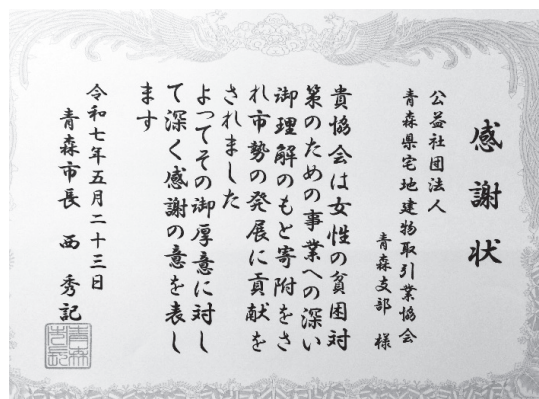 感謝状
公益社団法人
青森県宅地建物取引業協会
青森支部 様
貴協会は女性の貧困対
策のための事業への深い
御理解のもと寄附をさ
れ市勢の発展に貢献を
されました
よってその御厚意に対し
て深く感謝の意を表し
ます
令和七年五月二十三日
青森市長 西 秀記
青森
市長